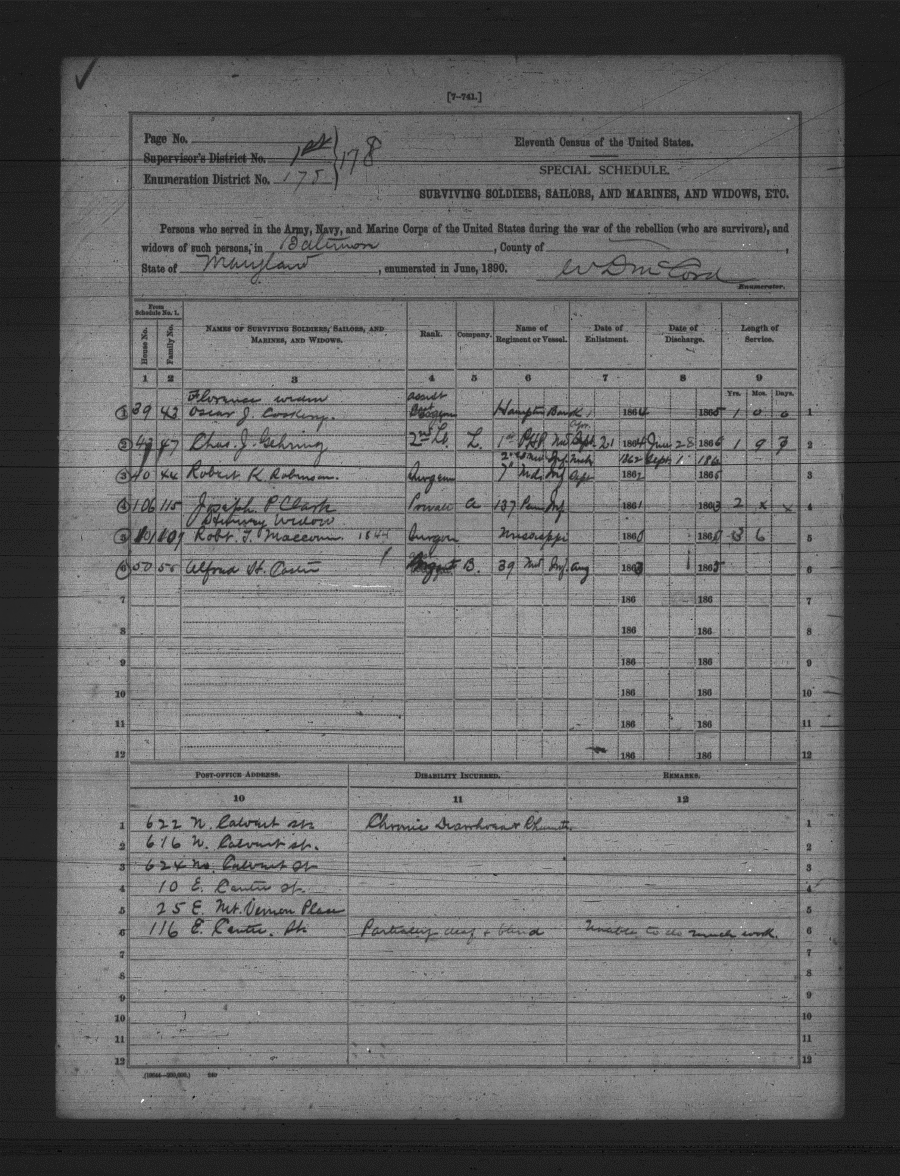 [7-741.]
Page No.
Supervisor's District No. 1st
178
Enumeration District No. 175
Eleventh Census of the United States.
SPECIAL SCHEDULE.
SURVIVING SOLDIERS, SAILORS, AND MARINES, AND WIDOWS, ETC.
Persons who served in the Army, Navy, and Marine Corps of the United States during the war of the rebellion (who are survivors), and
widows of such persons, in Baltimore, County of
State of Maryland, enumerated in June, 1890. W D McCord
Enumerator.
From Schedule No. 1.
House No. Family No. NAMES OF SURVIVING SOLDIERS, SAILORS, AND MARINES, AND WIDOWS. Rank. Company. Name of Regiment or Vessel. Date of Enlistment. Date of Discharge. Length of Service.
1 2 3 4 5 6 7 8 9
Yrs. Mos. Days.
Florence widow assist
1 39 43 Oscar J. 1864 1865 1 0 0 1
2 47 Chas. J. Gehring 2nd Lt. L. 1st P.H.B. Md 21 1864 June 28 1865 1 9 2
1862 Sept. 1 186
3 40 44 Robert K Robinson. Surgeon 7" Md. Inf Sept 1862 1865 3
4 106 115 Joseph P Clark Private A 137 Penn Inf 1861 1863 2 x x 4
Widow
5 109 Robt. T. 1844 Surgeon Mississippi 186 186 3 6 5
6 50 50 Alfred H. B. 39 Md. Inf. Aug 1863 1865 6
7 186 186 7
8 186 186 8
9 186 186 9
10 186 186 10
11 186 186 11
12 186 186 12
POST-OFFICE ADDRESS. DISABILITY INCURRED. REMARKS.
10 11 12
1 622 N. Calvert st. Chronic Diarrhoea & 1
2 616 N. Calvert st. 2
3 624 No. Calvert St 3
4 10 E. Centre st. 4
5 25 E. Mt. Vernon Place 5
6 116 E. Centre. St. Partially deaf & blind Unable to do much work. 6
7 7
8 8
9 9
10 10
11 11
12 12